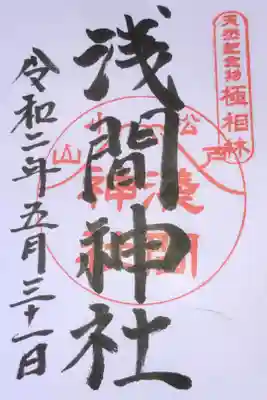 天然記念物
極相林
浅間神社
松戸
小山
淺間
神社
令和二年五月三十一日